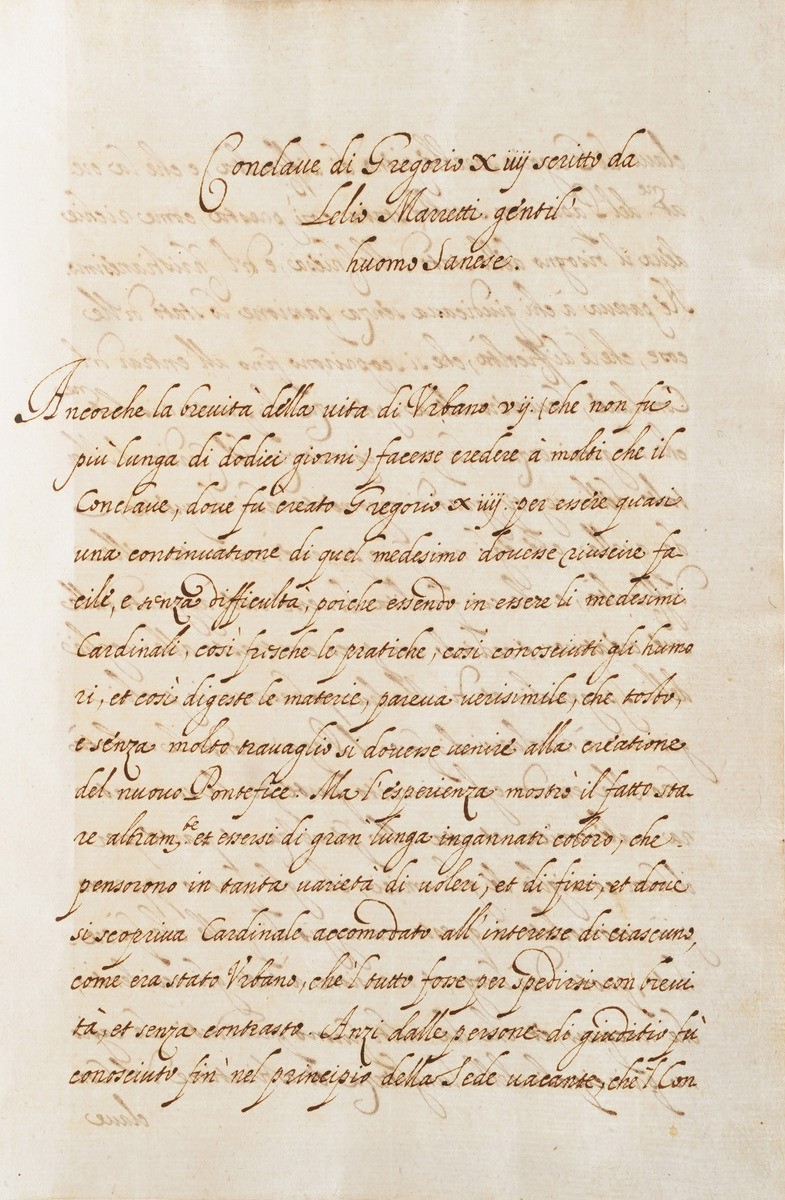 Conclaue di Gregorio x iiij scritto da
Lelio Marretti gentil'
huomo Sanese.
Ancorche la breuità della uita di Vrbano vij. (che non fù
più lunga di dodici giorni) facesse credere à molti che il
Conclaue, doue fu creato Gregorio x iiij. per essere quasi
una continuatione di quel medesimo douesse riuscire fa
cile, e senza difficultà, poiche essendo in essere li medesimi
Cardinali, così fresche le pratiche, così conosciuti gli humo
ri, et così digeste le materie, pareua uerisimile, che tosto,
e senza molto trauaglio si douesse uenire alla creatione
del nuouo Pontefice. Ma l'esperienza mostrò il fatto sta
re altram.te et essersi di gran lunga ingannati coloro, che
pensorono in tanta uarietà di uoleri, et di fini, et doue
si scopriua Cardinale accomodato all'interesse di ciascuno,
come era stato Vrbano, che'l tutto fosse per spedirsi con breui
tà, et senza contrasto. Anzi dalle persone di giuditio fù
conosciuto fin' nel principio della Sede uacante, che'l Con
claue